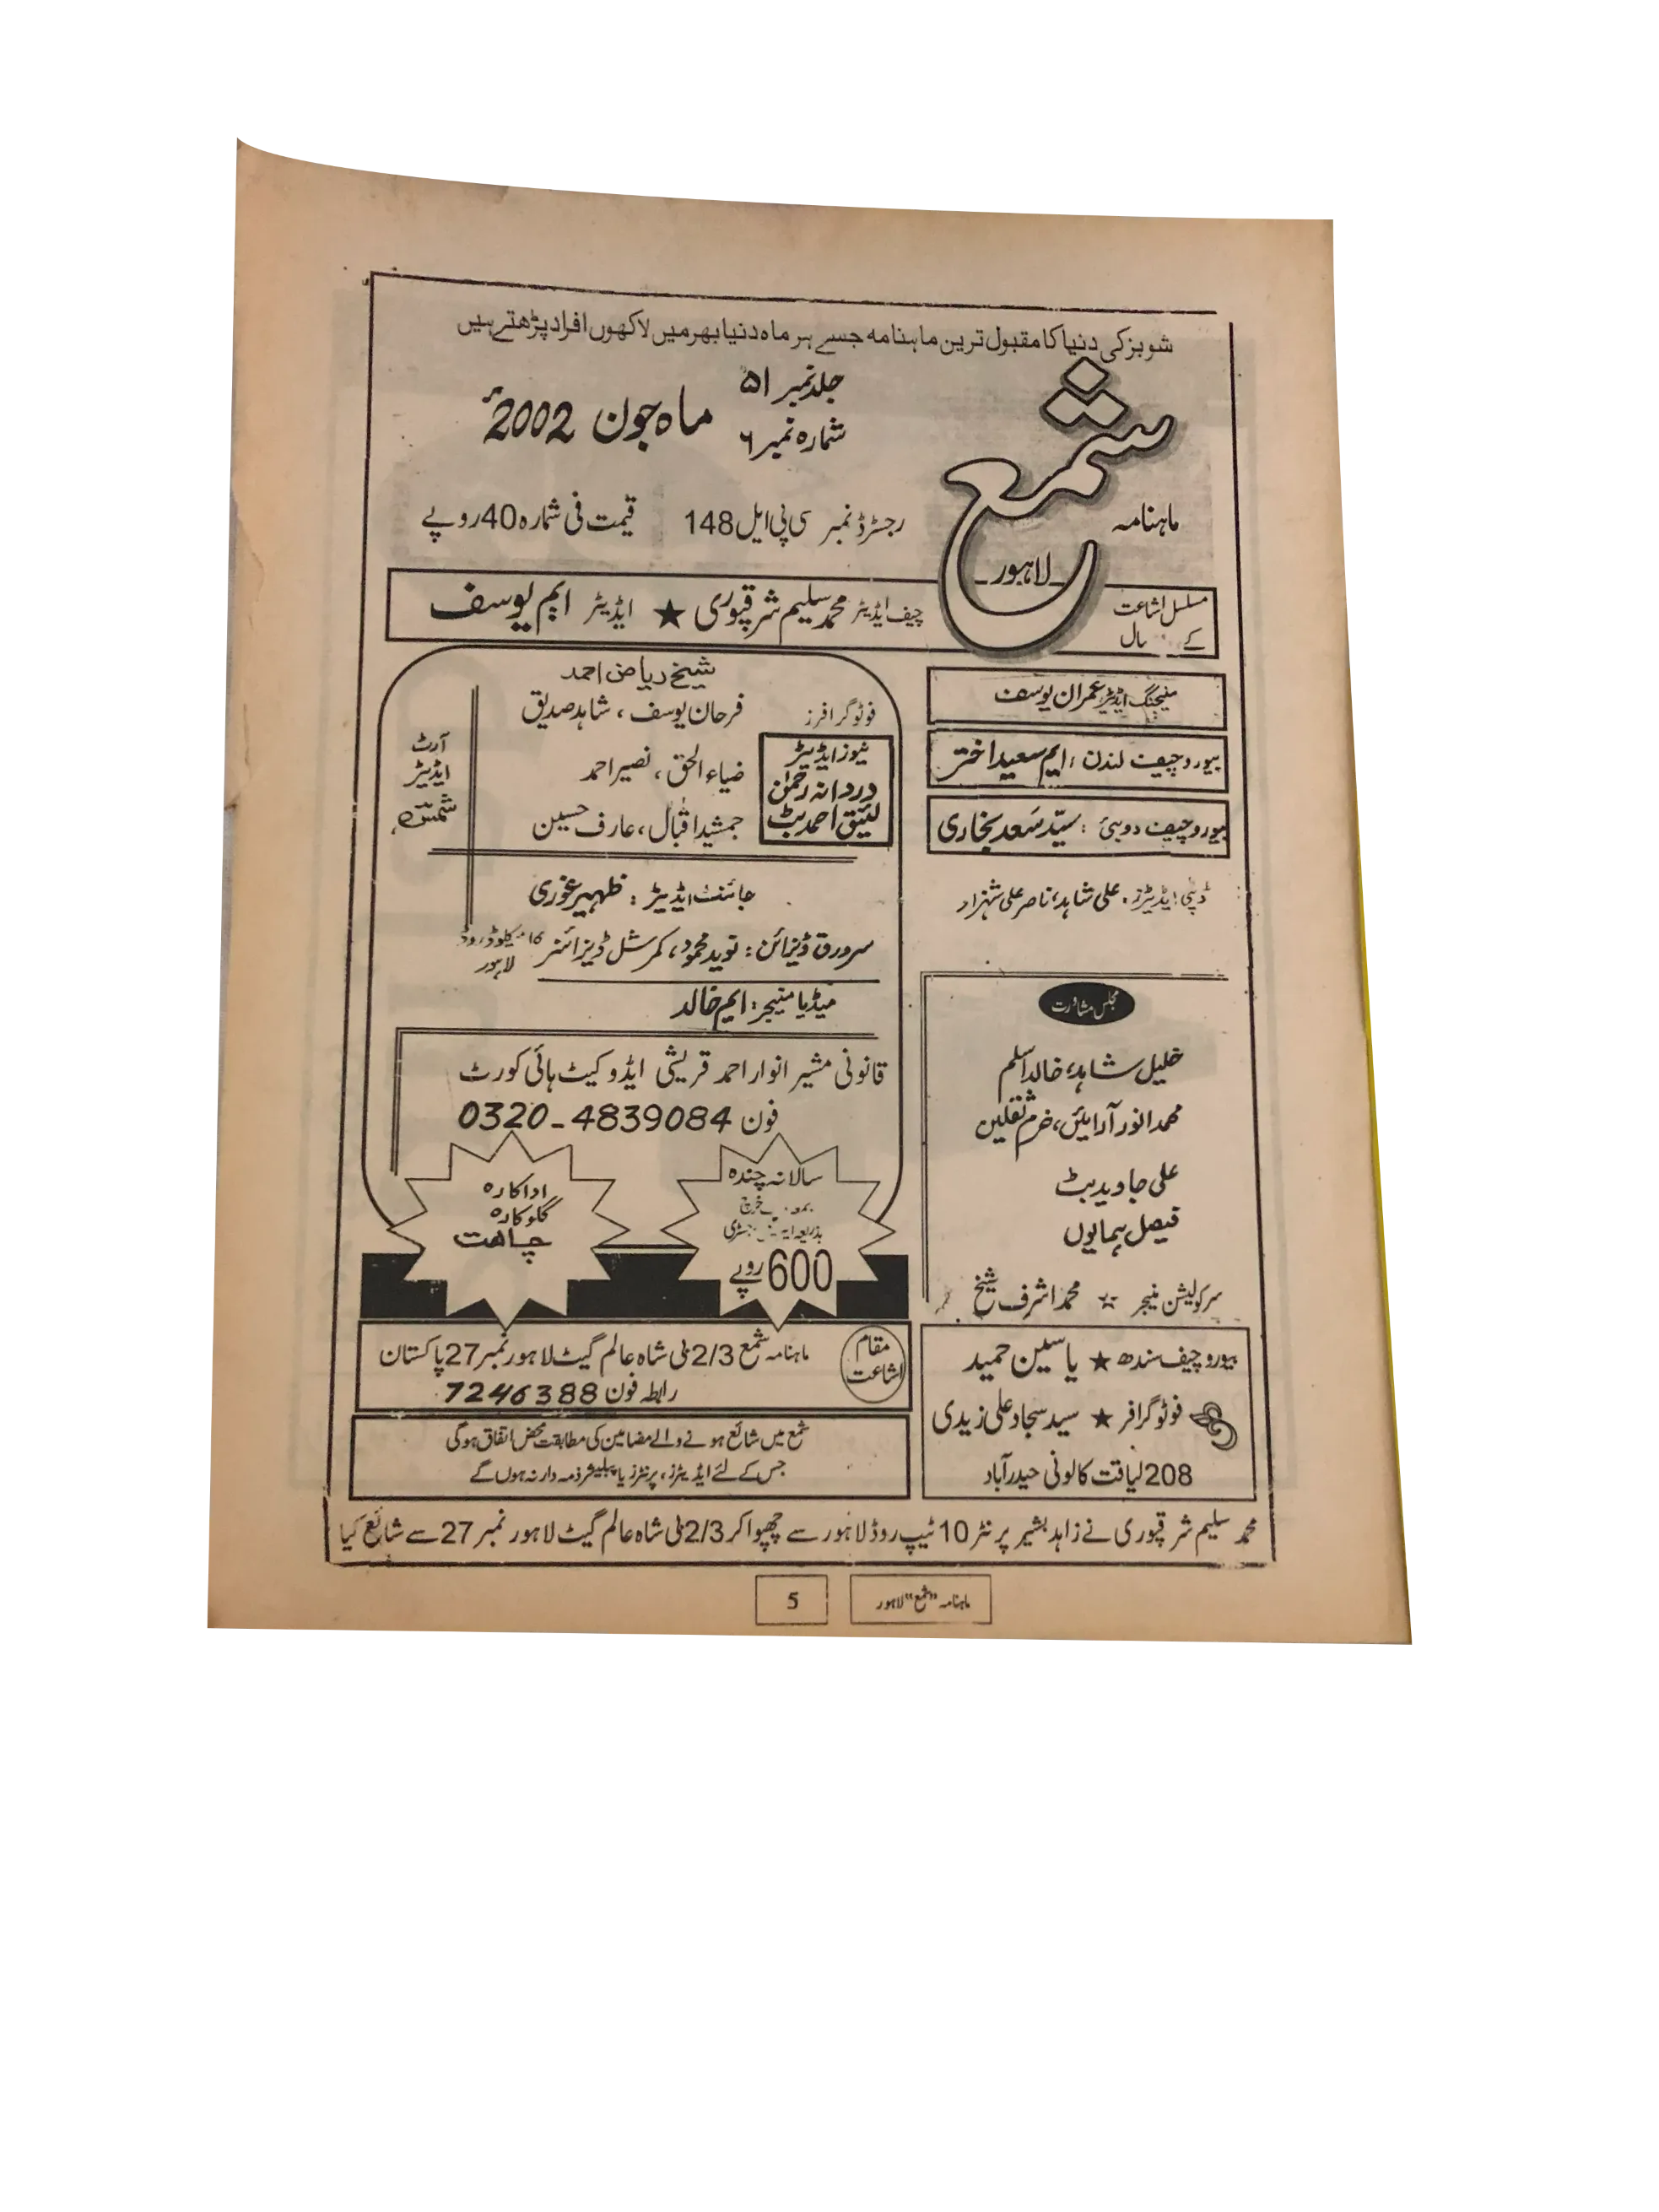 شوبز کی دنیا کا مقبول ترین ماہنامہ جسے ہر ماہ دنیا بھر میں لاکھوں افراد پڑھتے ہیں
ماہنامہ شمع لاہور
جلد نمبر ۵۱
شمارہ نمبر ۶
ماہ جون 2002ء
رجسٹرڈ نمبر سی پی ایل 148
قیمت فی شمارہ 40 روپے
مسلسل اشاعت
کے سال
چیف ایڈیٹر محمد سلیم شرقپوری ★ ایڈیٹر ایم یوسف
منیجنگ ایڈیٹر عمران یوسف
بیورو چیف لندن : ایم سعید اختر
بیورو چیف دوبئی : سید سعد بخاری
ڈپٹی ایڈیٹرز : علی شاہد، ناصر علی شہزاد
مجلس مشاورت
خلیل شاہد، خالد اسلم
محمد انور آرائیں، خرم ثقلین
علی جاوید بٹ
فیصل ہمایوں
سرکولیشن منیجر ☆ محمد اشرف شیخ
بیورو چیف سندھ ★ یاسین حمید
فوٹوگرافر ★ سید سجاد علی زیدی
208 لیاقت کالونی حیدرآباد
شیخ ریاض احمد
فوٹوگرافرز
فرحان یوسف ، شاہد صدیق
ضیاء الحق ، نصیر احمد
جمشید اقبال ، عارف حسین
نیوز ایڈیٹر
دردانہ رحمٰن
لئیق احمد بٹ
آرٹ
ایڈیٹر
شمس
جائنٹ ایڈیٹر : ظہیر غوری
سرورق ڈیزائن : نوید محمود، کمرشل ڈیزائنر میکلوڈ روڈ
لاہور
میڈیا منیجر : ایم خالد
قانونی مشیر انوار احمد قریشی ایڈوکیٹ ہائی کورٹ
فون 0320-4839084
سالانہ چندہ
خرچ
بذریعہ
600 روپے
اداکارہ
گلوکارہ
چاہت
مقام
اشاعت
ماہنامہ شمع 2/3 بی شاہ عالم گیٹ لاہور نمبر 27 پاکستان
رابطہ فون 7246388
شمع میں شائع ہونے والے مضامین کی مطابقت محض اتفاق ہوگی
جس کے لئے ایڈیٹرز، پرنٹرز یا پبلیشرز ذمہ دار نہ ہوں گے
محمد سلیم شرقپوری نے زاہد بشیر پرنٹر 10 ٹیپ روڈ لاہور سے چھپوا کر 2/3 بی شاہ عالم گیٹ لاہور نمبر 27 سے شائع کیا
ماہنامہ "شمع" لاہور
5